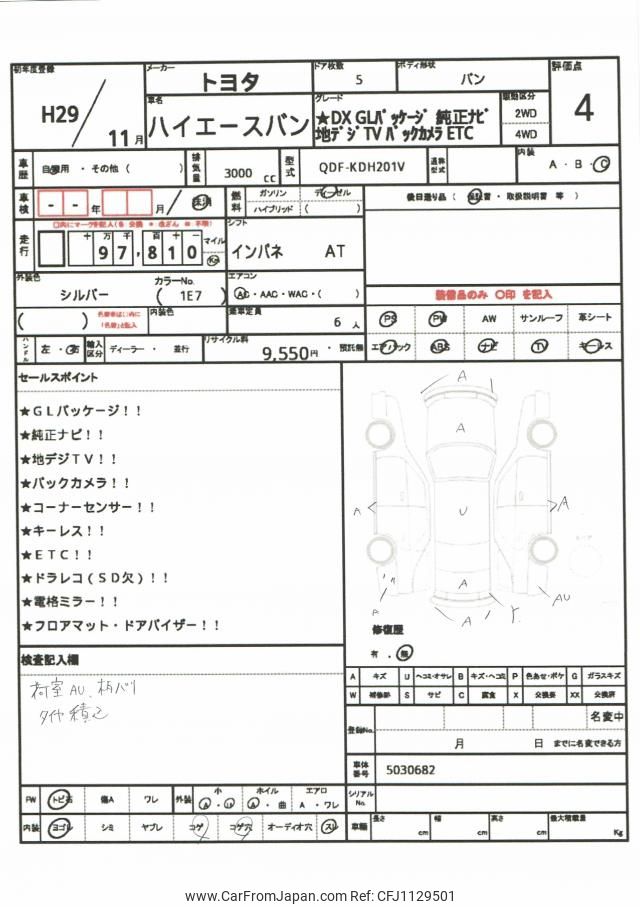 初年度登録
H29 / 11 月
メーカー トヨタ
ドア枚数 5
ボディ形状 バン
評価点 4
車名 ハイエースバン
グレード ★DX GLパッケージ 純正ナビ
地デジ TV バックカメラ ETC
駆動区分
2WD
4WD
車歴 自家用 ・ その他 ( )
排気量 3000 cc
型式 QDF-KDH201V
通称型式
内装 A ・ B ・ C
車検 - - 年 月 / 抹消
燃料 ガソリン ディーゼル
ハイブリッド ( )
後日送り品 ( 保証書 ・ 取扱説明書 等 )
走行 十 万 千 百 十 一
97,810
マイル
Km
シフト
インパネ AT
外装色 シルバー
カラーNo. ( 1E7 )
エアコン
AC ・ AAC ・ WAC ・ ( )
装備品のみ ○印 を記入
内装色
乗車定員 6 人
PS PW AW サンルーフ 革シート
エアバック ABS ナビ TV キーレス
ハンドル 左 ・ 右
輸入区分 ディーラー ・ 並行
リサイクル料 9,550円 ・ 預託無
セールスポイント
★GLパッケージ！！
★純正ナビ！！
★地デジTV！！
★バックカメラ！！
★コーナーセンサー！！
★キーレス！！
★ETC！！
★ドラレコ（SD欠）！！
★電格ミラー！！
★フロアマット・ドアバイザー！！
A
A
A U A
A
A A AU
修復歴
有 ・ 無
検査記入欄
荷室 AU
タイヤ積込
A キズ U ヘコミ・オサレ B キズ・ヘコミ P 色あせ・ボケ G ガラスキズ
W 補修跡 S サビ C 腐食 X 交換要 XX 交換済
名変中
登録No.
月 日 までに名変できる方
車体番号 5030682
シリアルNo.
FW トビ石 傷A ワレ
外装 小 A ・ U ホイル A ・ 曲 エアロ A ・ ワレ
内装 ヨゴレ シミ ヤブレ コゲ コゲ穴 オーディオ穴 スレ
車輌 長さ cm 幅 cm 高さ cm 最大積載量 Kg
www.CarFromJapan.com Ref: CFJ1129501